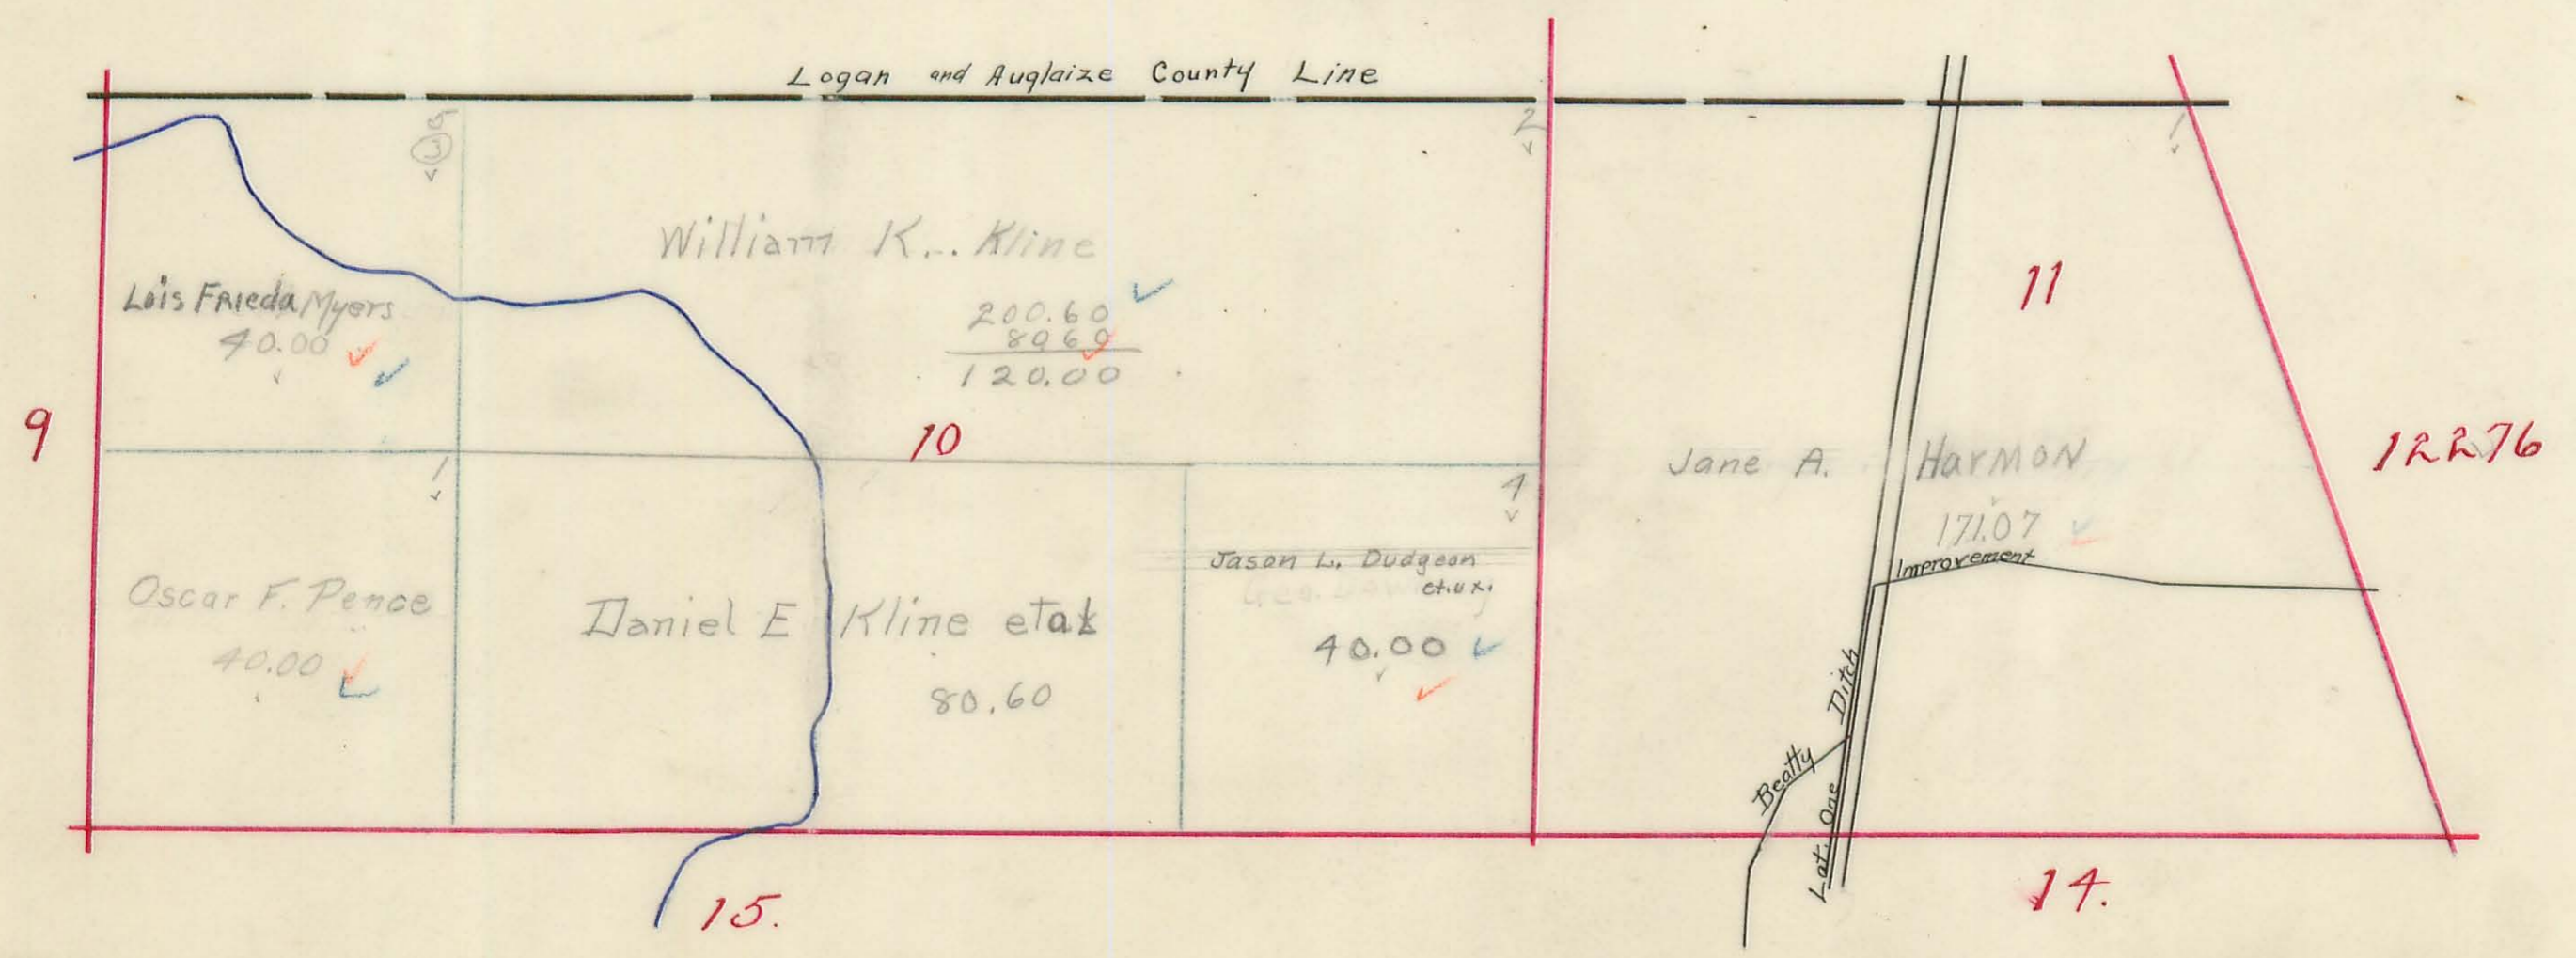 Logan and Auglaize County Line
3
2
1
William K.. Kline
200.60
8060
120.00
Lois Frieda Myers
40.00
9
10
11
12276
1
4
Jane A. Harmon
171.07
Improvement
Oscar F. Pence
40.00
Daniel E Kline etal
80.60
Jason L. Dudgeon
et.ux.
40.00
Beatty Ditch
Lat. One
15.
14.